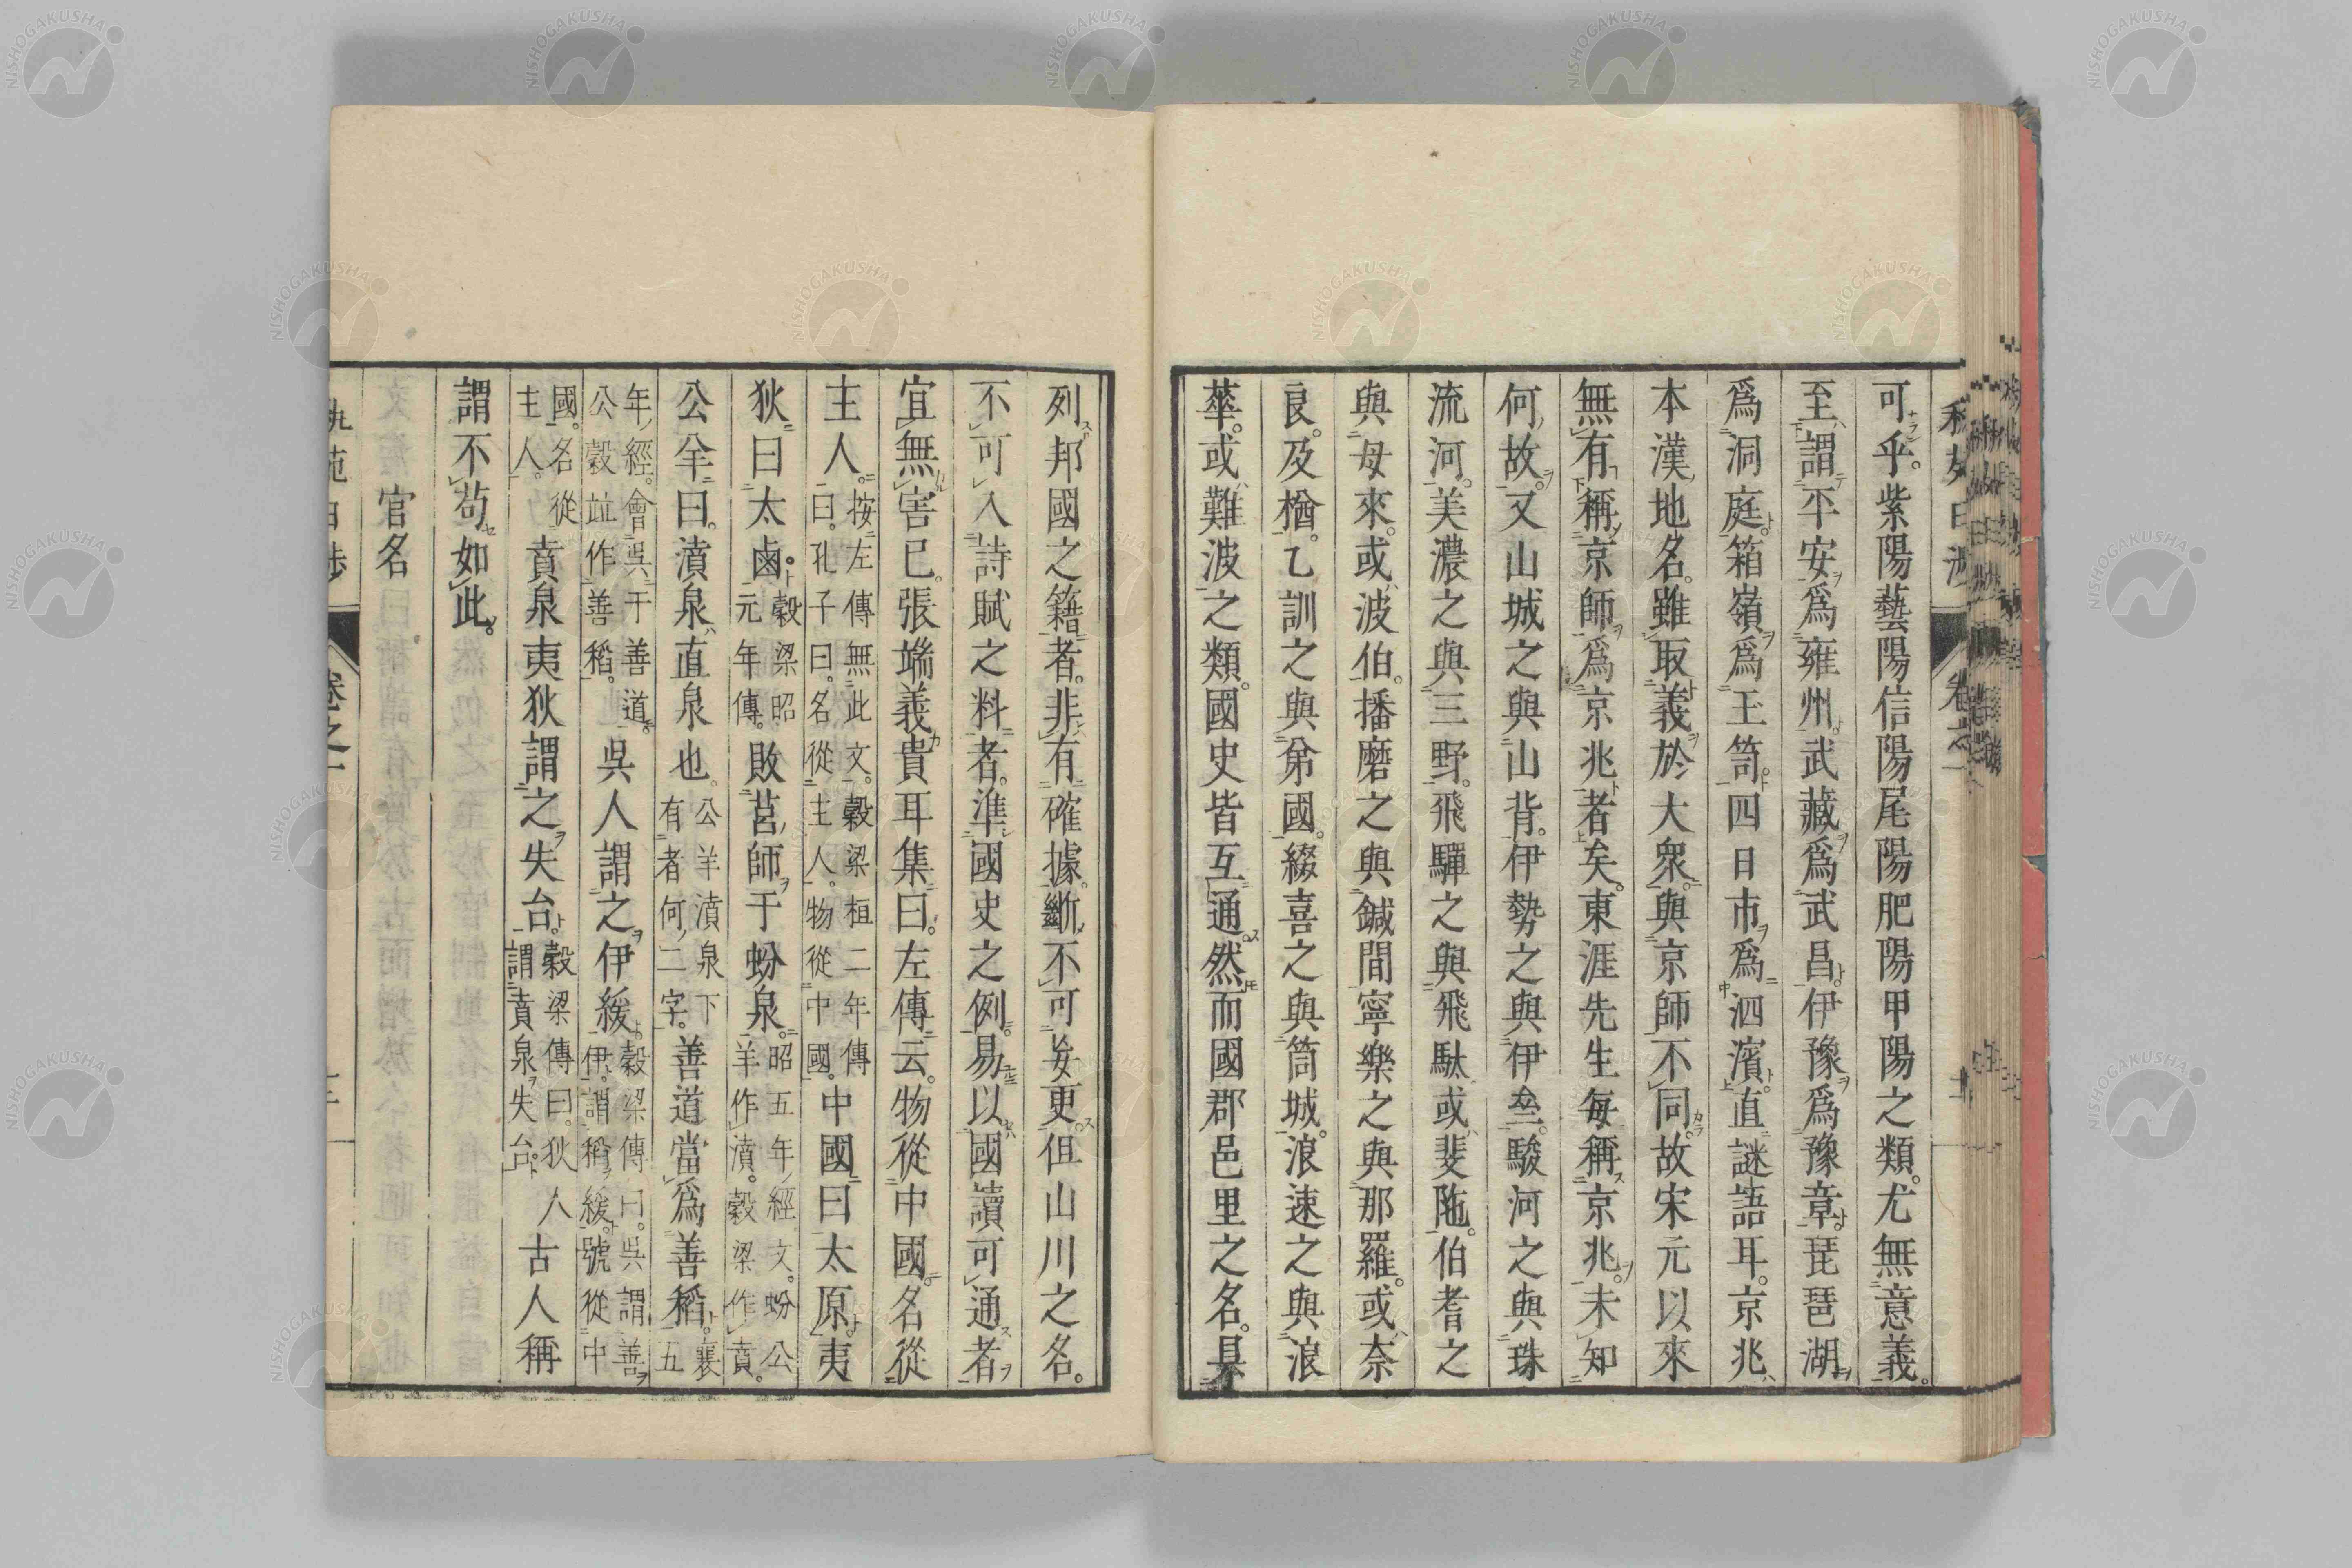 可乎。紫陽藝陽信陽尾陽肥陽甲陽之類。尤無意義。
至謂平安爲雍州。武藏爲武昌。伊豫爲豫章。琵琶湖
爲洞庭。箱嶺爲玉笥。四日市爲泗濱。直謎語耳。京兆
本漢地名。雖取義於大衆。與京師不同。故宋元以來
無有稱京師爲京兆者矣。東涯先生每稱京兆。未知
何故。又山城之與山背。伊勢之與伊叁。駿河之與珠
流河。美濃之與三野。飛驒之與飛駄。或斐陁。伯耆之
與母來。或波伯。播磨之與鍼間。寧樂之與那羅。或奈
良。及楢。乙訓之與弟國。綴喜之與筒城。浪速之與浪
華。或難波之類。國史皆互通。然而國郡邑里之名。具
列邦國之籍者。非有確據。斷不可妄更。但山川之名。
不可入詩賦之料者。準國史之例。易以國讀可通者
宜無害已。張端義貴耳集曰。左傳云。物從中國。名從
主人。按左傳無此文。穀梁桓二年傳曰。孔子曰。名從主人。物從中國。中國曰太原。夷
狄曰太鹵。穀梁昭元年傳。敗莒師于蚡泉。昭五年經文。蚡公羊作濆。穀梁作賁。
公羊曰。濆泉直泉也。公羊濆泉下有者何二字。善道當爲善稻。襄五
年經。會吳于善道。公穀竝作善稻。吳人謂之伊緩。穀梁傳曰。吳謂善伊。謂稻緩。號從中
國。名從主人。賁泉夷狄謂之失台。穀梁傳曰。狄人謂賁泉失台。古人稱
謂不苟如此。
官名
卷之一
NISHOGAKUSHA